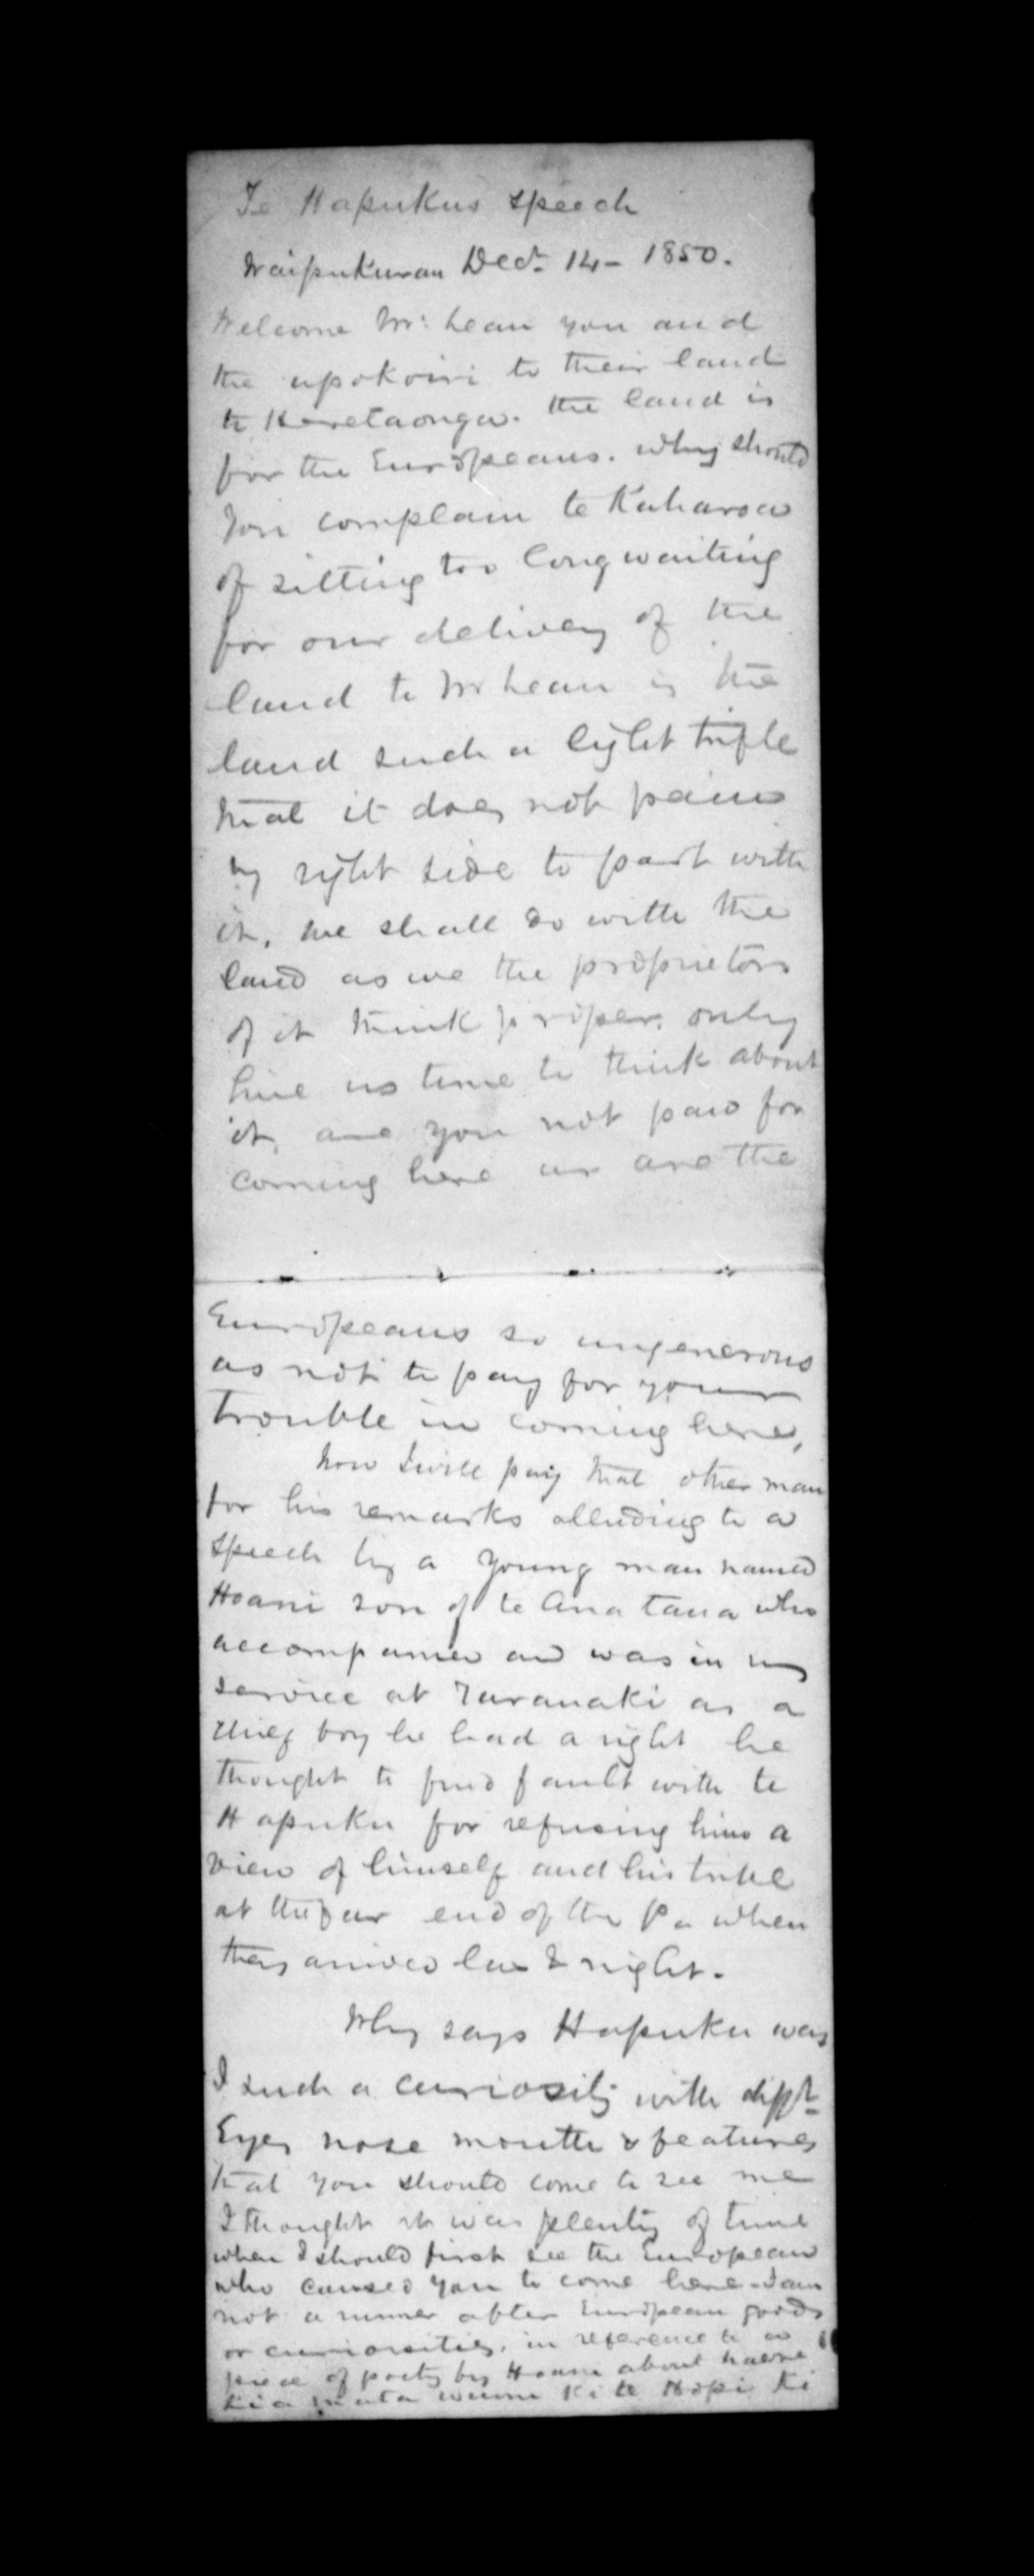 Te Hapukus speech
Waipukurau Decr. 14 - 1850.
Welcome Mr. Lean you and
the upokoiri to their land
to Heretaonga. the land is
for the Europeans. Why should
you complain te Kaharoa
of sitting too long waiting
for our delivery of the
land to Mr Lean is the
land such a light trifle
that it does not pain
my right side to part with
it, we shall do with the
land as we the proprietors
of it think proper. only
give us time to think about
it, are you not paid for
coming here or are the
Europeans so ungenerous
as not to pay for your
trouble in coming here,
Now I will pay that other man
for his remarks alluding to a
speech by a young man named
Hoani son of te Anatana who
accompanied and was in my
service at Taranaki as a
chief boy he had a right he
thought to find fault with te
Hapuku for refusing him a
view of himself and his tribe
at the far end of the Pa when
they arrived last night.
Why says Hapuku was
I such a curiosity with difft
Eyes nose mouth & features
that you should come to see me
I thought it was plenty of time
when I should first see the European
who caused you to come here - I am
not a runner after European goods
or curiosities. in reference to a
piece of poetry by Hoani about haere
kia mata ki te Hopi ki